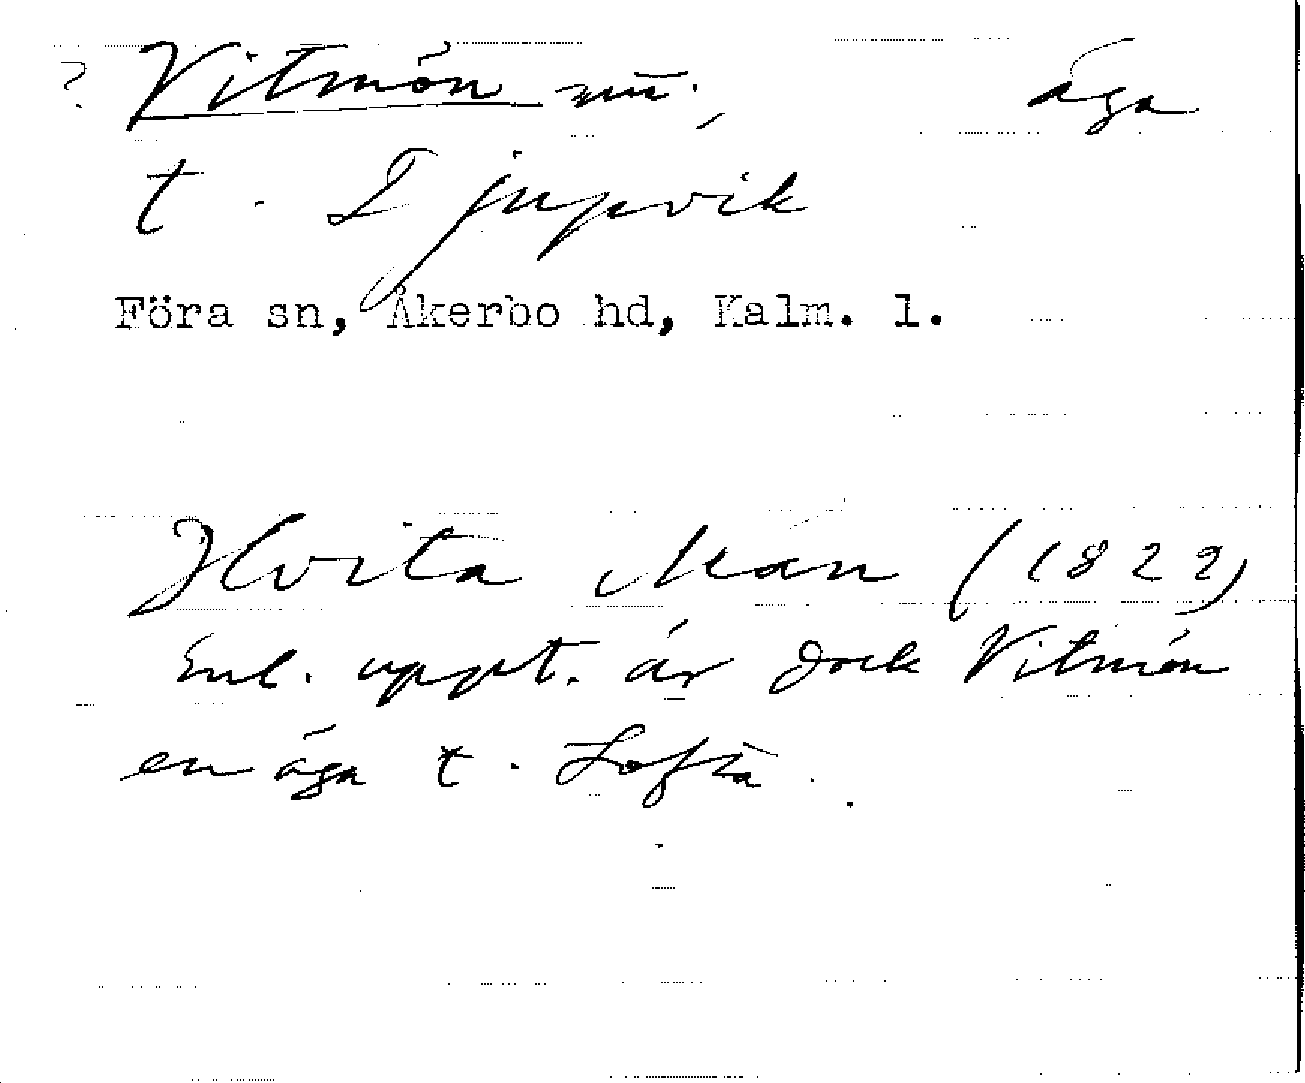 ? Vitmön nu, äga
t. Djupvik
Föra sn, Åkerbo hd, Kalm. l.
Hvita Mån (1822)
Enl. uppt. är dock Vitmön
en äga t. Lofta.